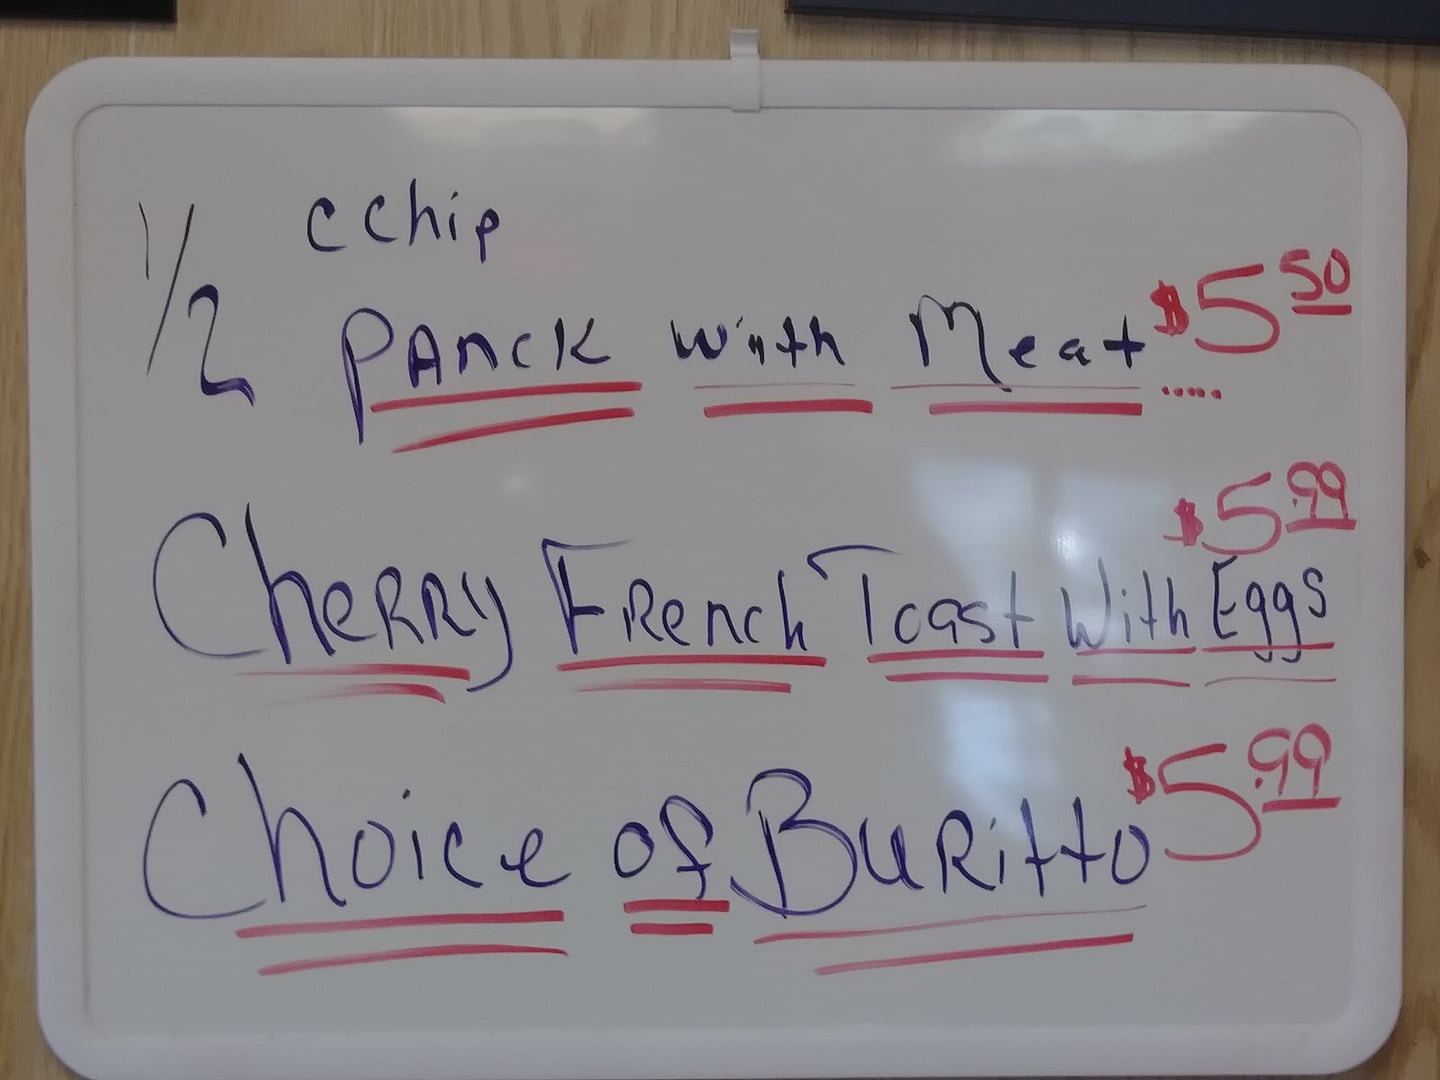 cchip
1/2 PAncK with Meat $5 50
$5.99
CheRRy FRench Toast With Eggs
Choice of BuRitto $5.99